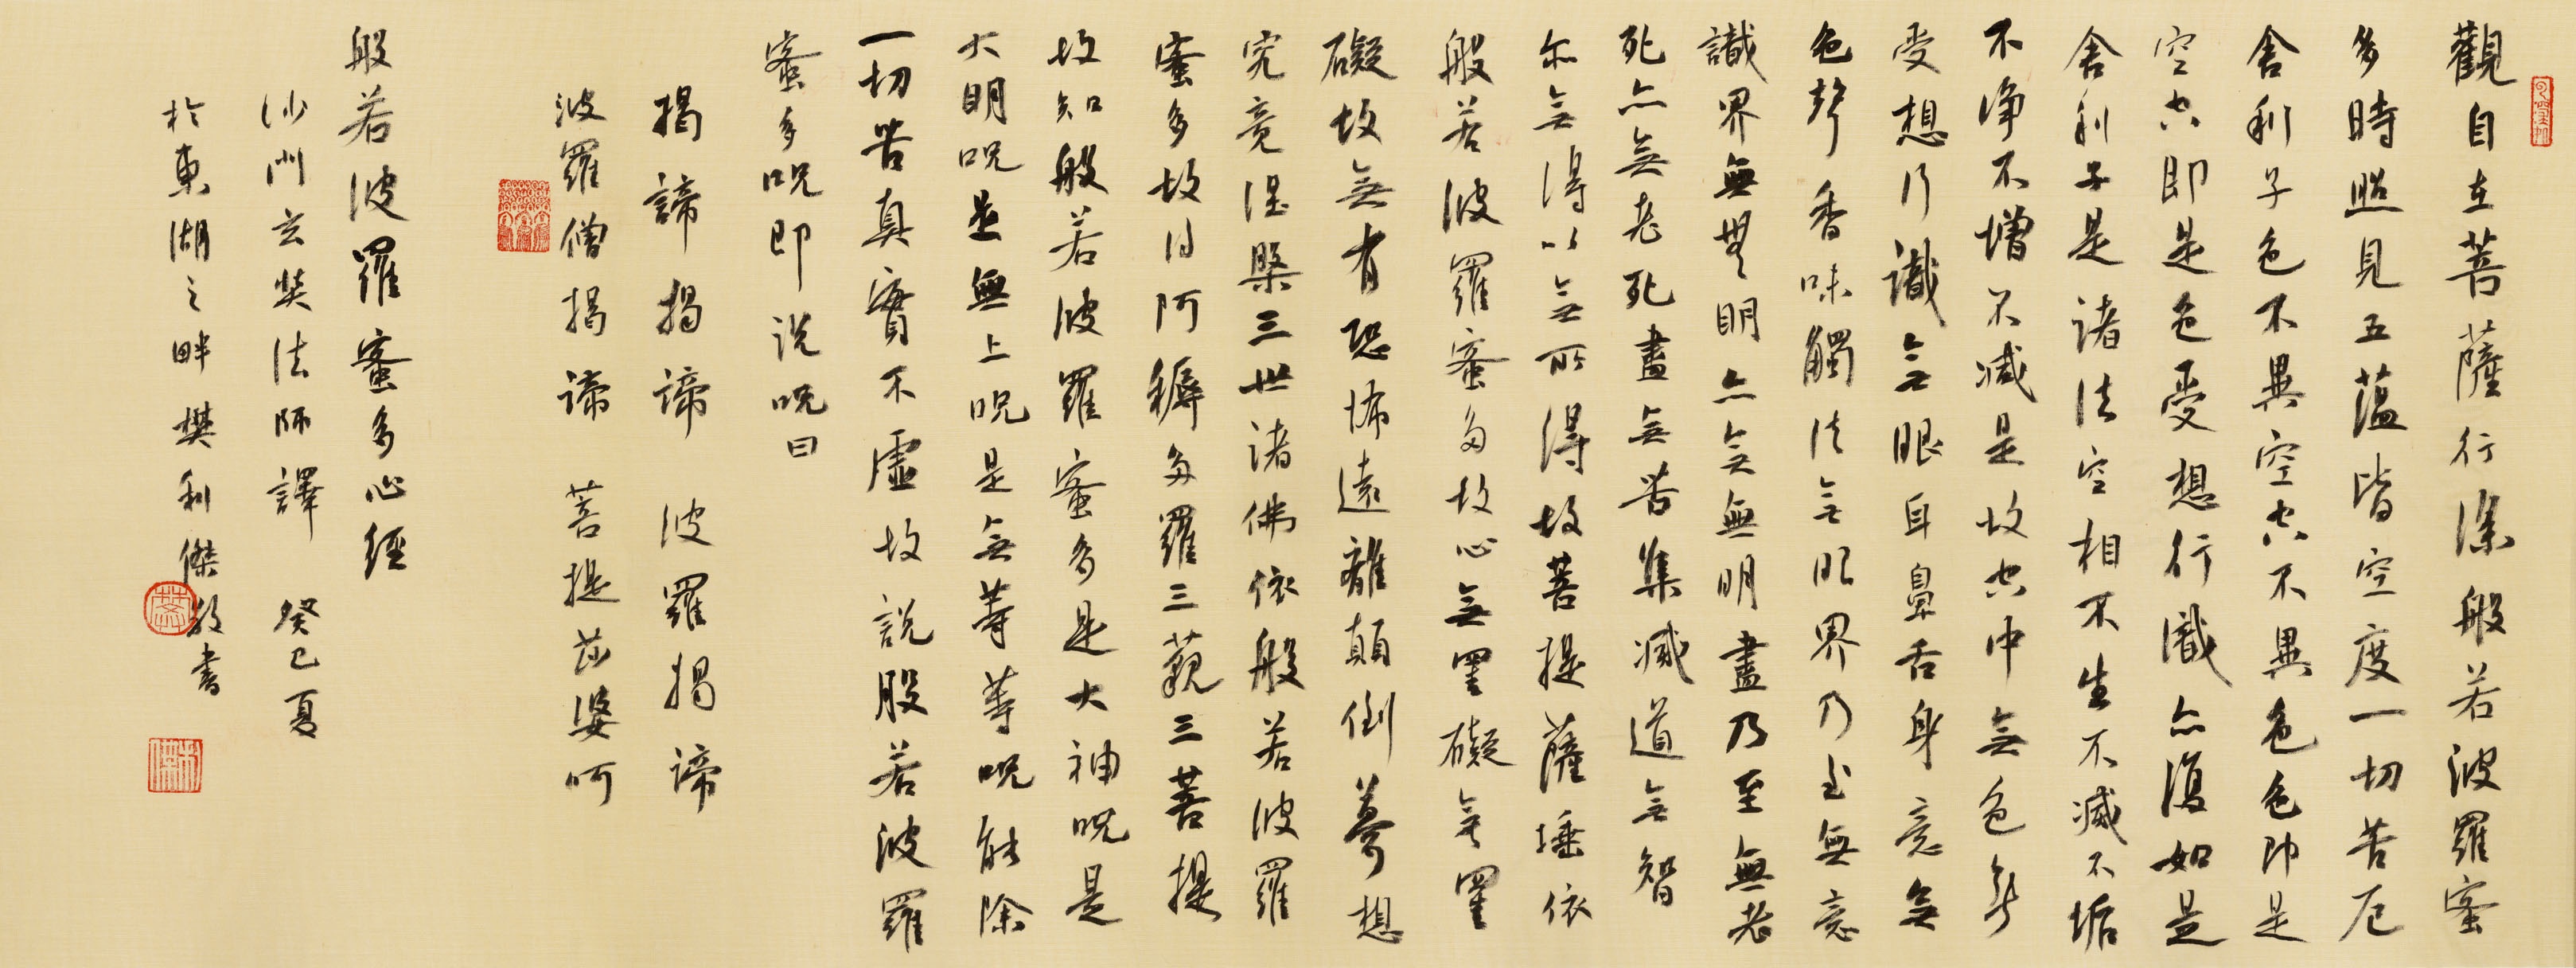 觀自在菩薩行深般若波羅蜜
多時照見五蘊皆空度一切苦厄
舍利子色不異空空不異色色即是
空空即是色受想行識亦復如是
舍利子是諸法空相不生不滅不垢
不淨不增不減是故空中無色無
受想行識無眼耳鼻舌身意無
色聲香味觸法無眼界乃至無意
識界無無明亦無無明盡乃至無老
死亦無老死盡無苦集滅道無智
亦無得以無所得故菩提薩埵依
般若波羅蜜多故心無罣礙無罣
礙故無有恐怖遠離顛倒夢想
究竟涅槃三世諸佛依般若波羅
蜜多故得阿耨多羅三藐三菩提
故知般若波羅蜜多是大神咒是
大明咒是無上咒是無等等咒能除
一切苦真實不虛故說般若波羅
蜜多咒即说咒曰
揭諦揭諦 波羅揭諦
波羅僧揭諦 菩提莎婆呵
般若波羅蜜多心經
沙門玄奘法師譯 癸巳夏
於東湖之畔樊利傑敬書